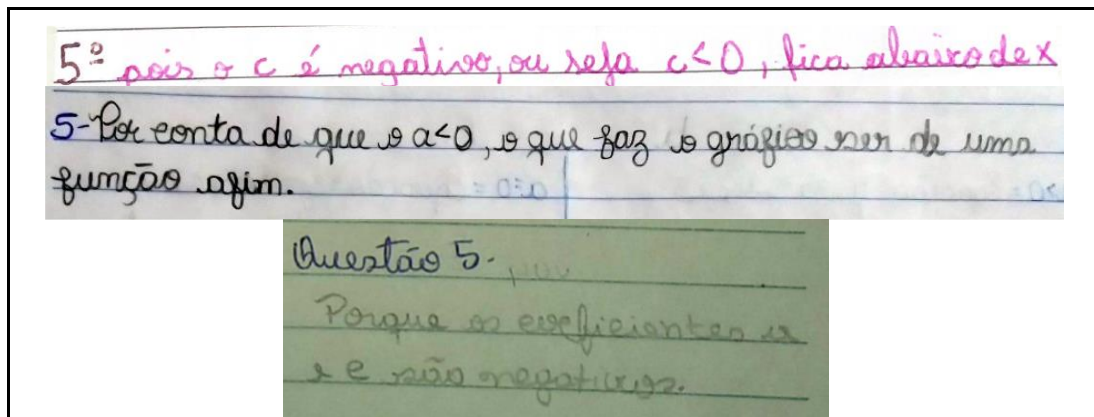 5º pois o c é negativo, ou seja c<0, fica abaixo de x
5-Por conta de que o a<0, o que faz o gráfico ser de uma
função afim.
Questão 5.
Porque os coeficientes
e são negativos.